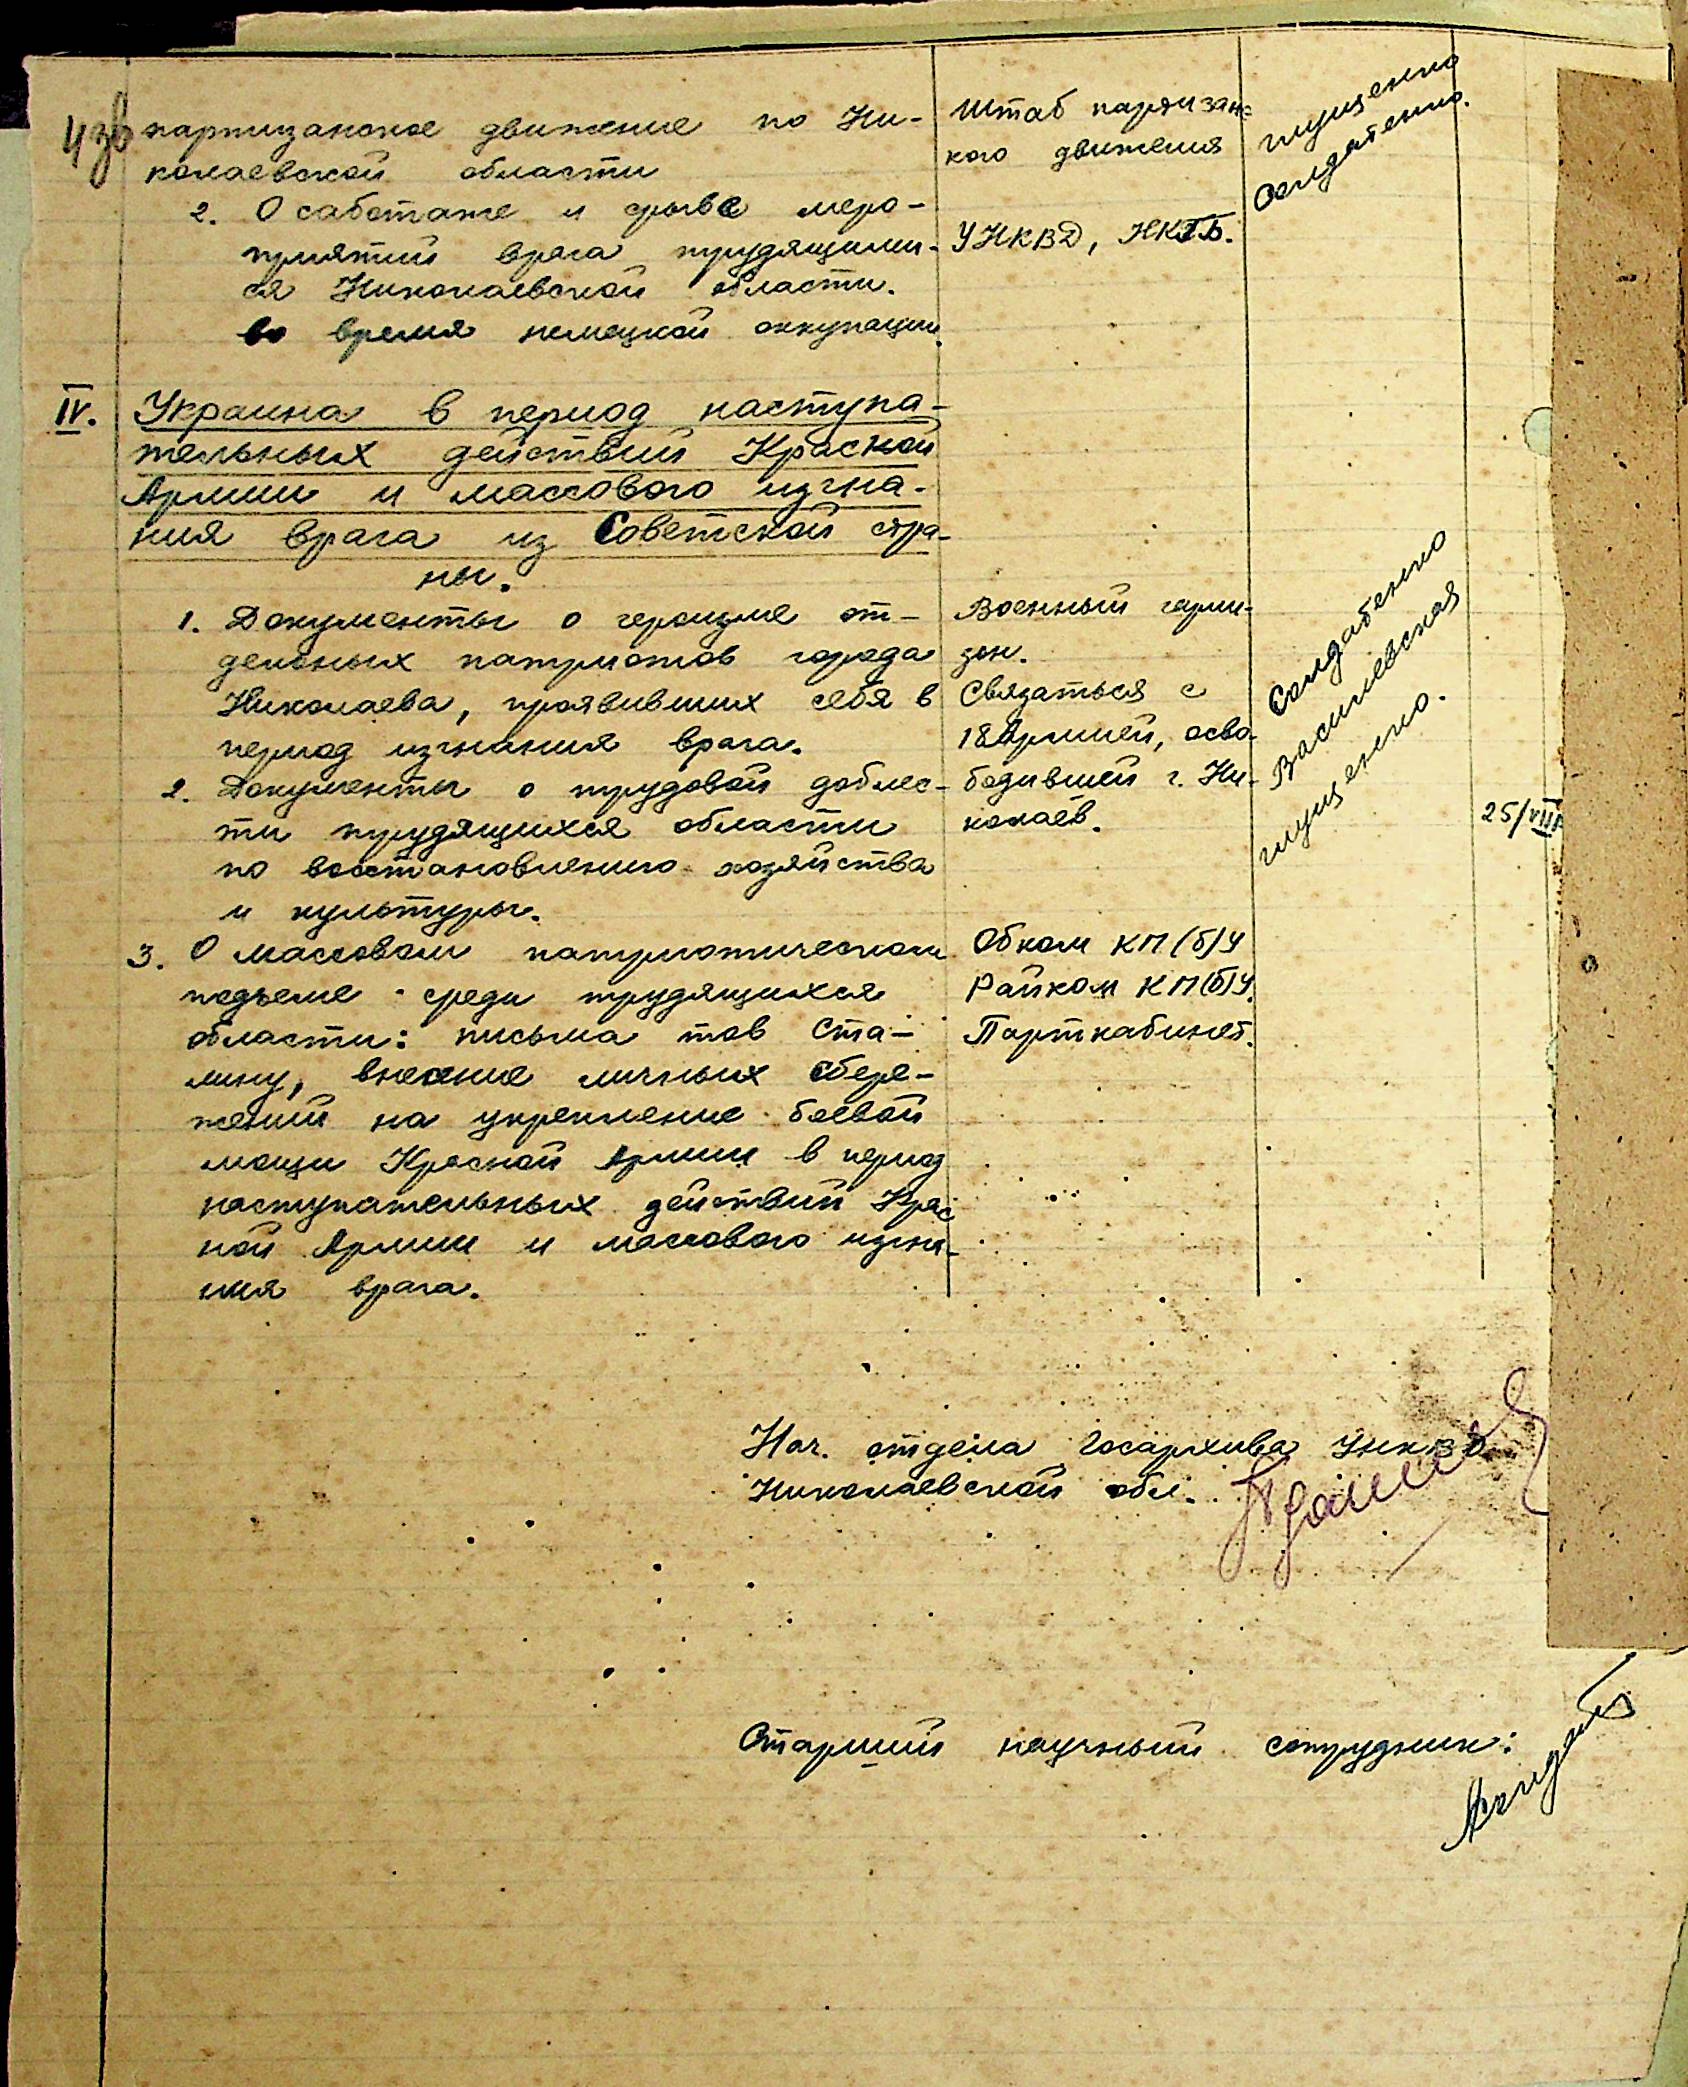 4зв
партизанское движение по Ни-
колаевской области
2. О саботаже и срыве меро-
приятий врага трудящими-
ся Николаевской области.
во время немецкой оккупации.
Штаб партизан-
кого движения
УНКВД, НКГБ.
IV.
Украина в период наступа-
тельных действий Красной
Армии и массового изгна-
ния врага из Советской стра-
ны.
1. Документы о героизме от-
дельных патриотов города
Николаева, проявивших себя в
период изгнания врага.
2. Документы о трудовой доблес-
ти трудящихся области
по восстановлению хозяйства
и культуры.
Военный гарни-
зон.
Связаться с
18 Армией, осво-
бодившей г. Ни-
колаев.
Василевская
25/VIII
3. О массовом патриотическом
подъеме среди трудящихся
области: письма тов Ста-
лину, внесение личных сбере-
жений на укрепление боевой
мощи Красной Армии в период
наступательных действий Крас
ной Армии и массового изгна-
ния врага.
Обком КП(б)У
Райком КП(б)У.
Парткабинет.
Нач. отдела Госархива УНКВД
Николаевской обл.
Старший научный сотрудник: